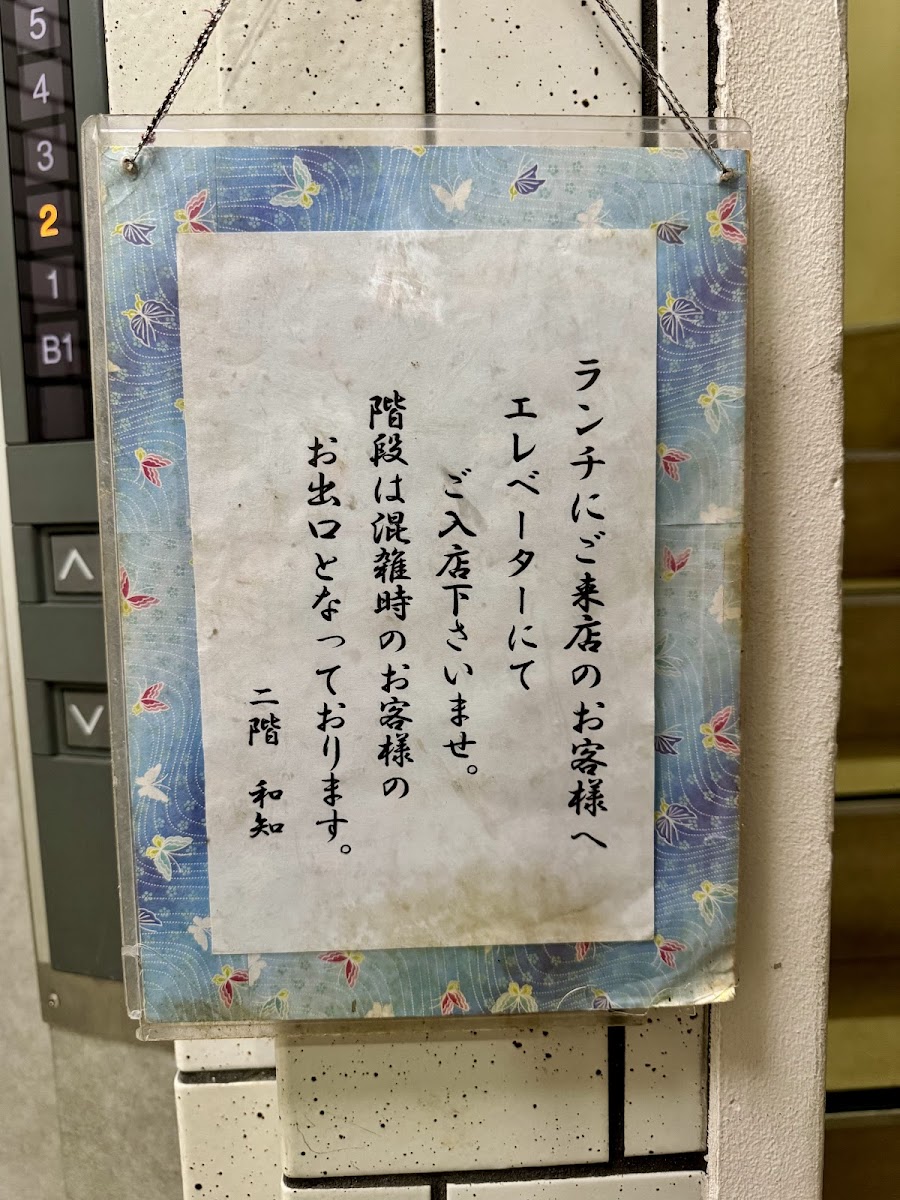 5
4
3
2
1
B1
ランチにご来店のお客様へ
エレベーターにて
ご入店下さいませ。
階段は混雑時のお客様の
お出口となっております。
二階 和知